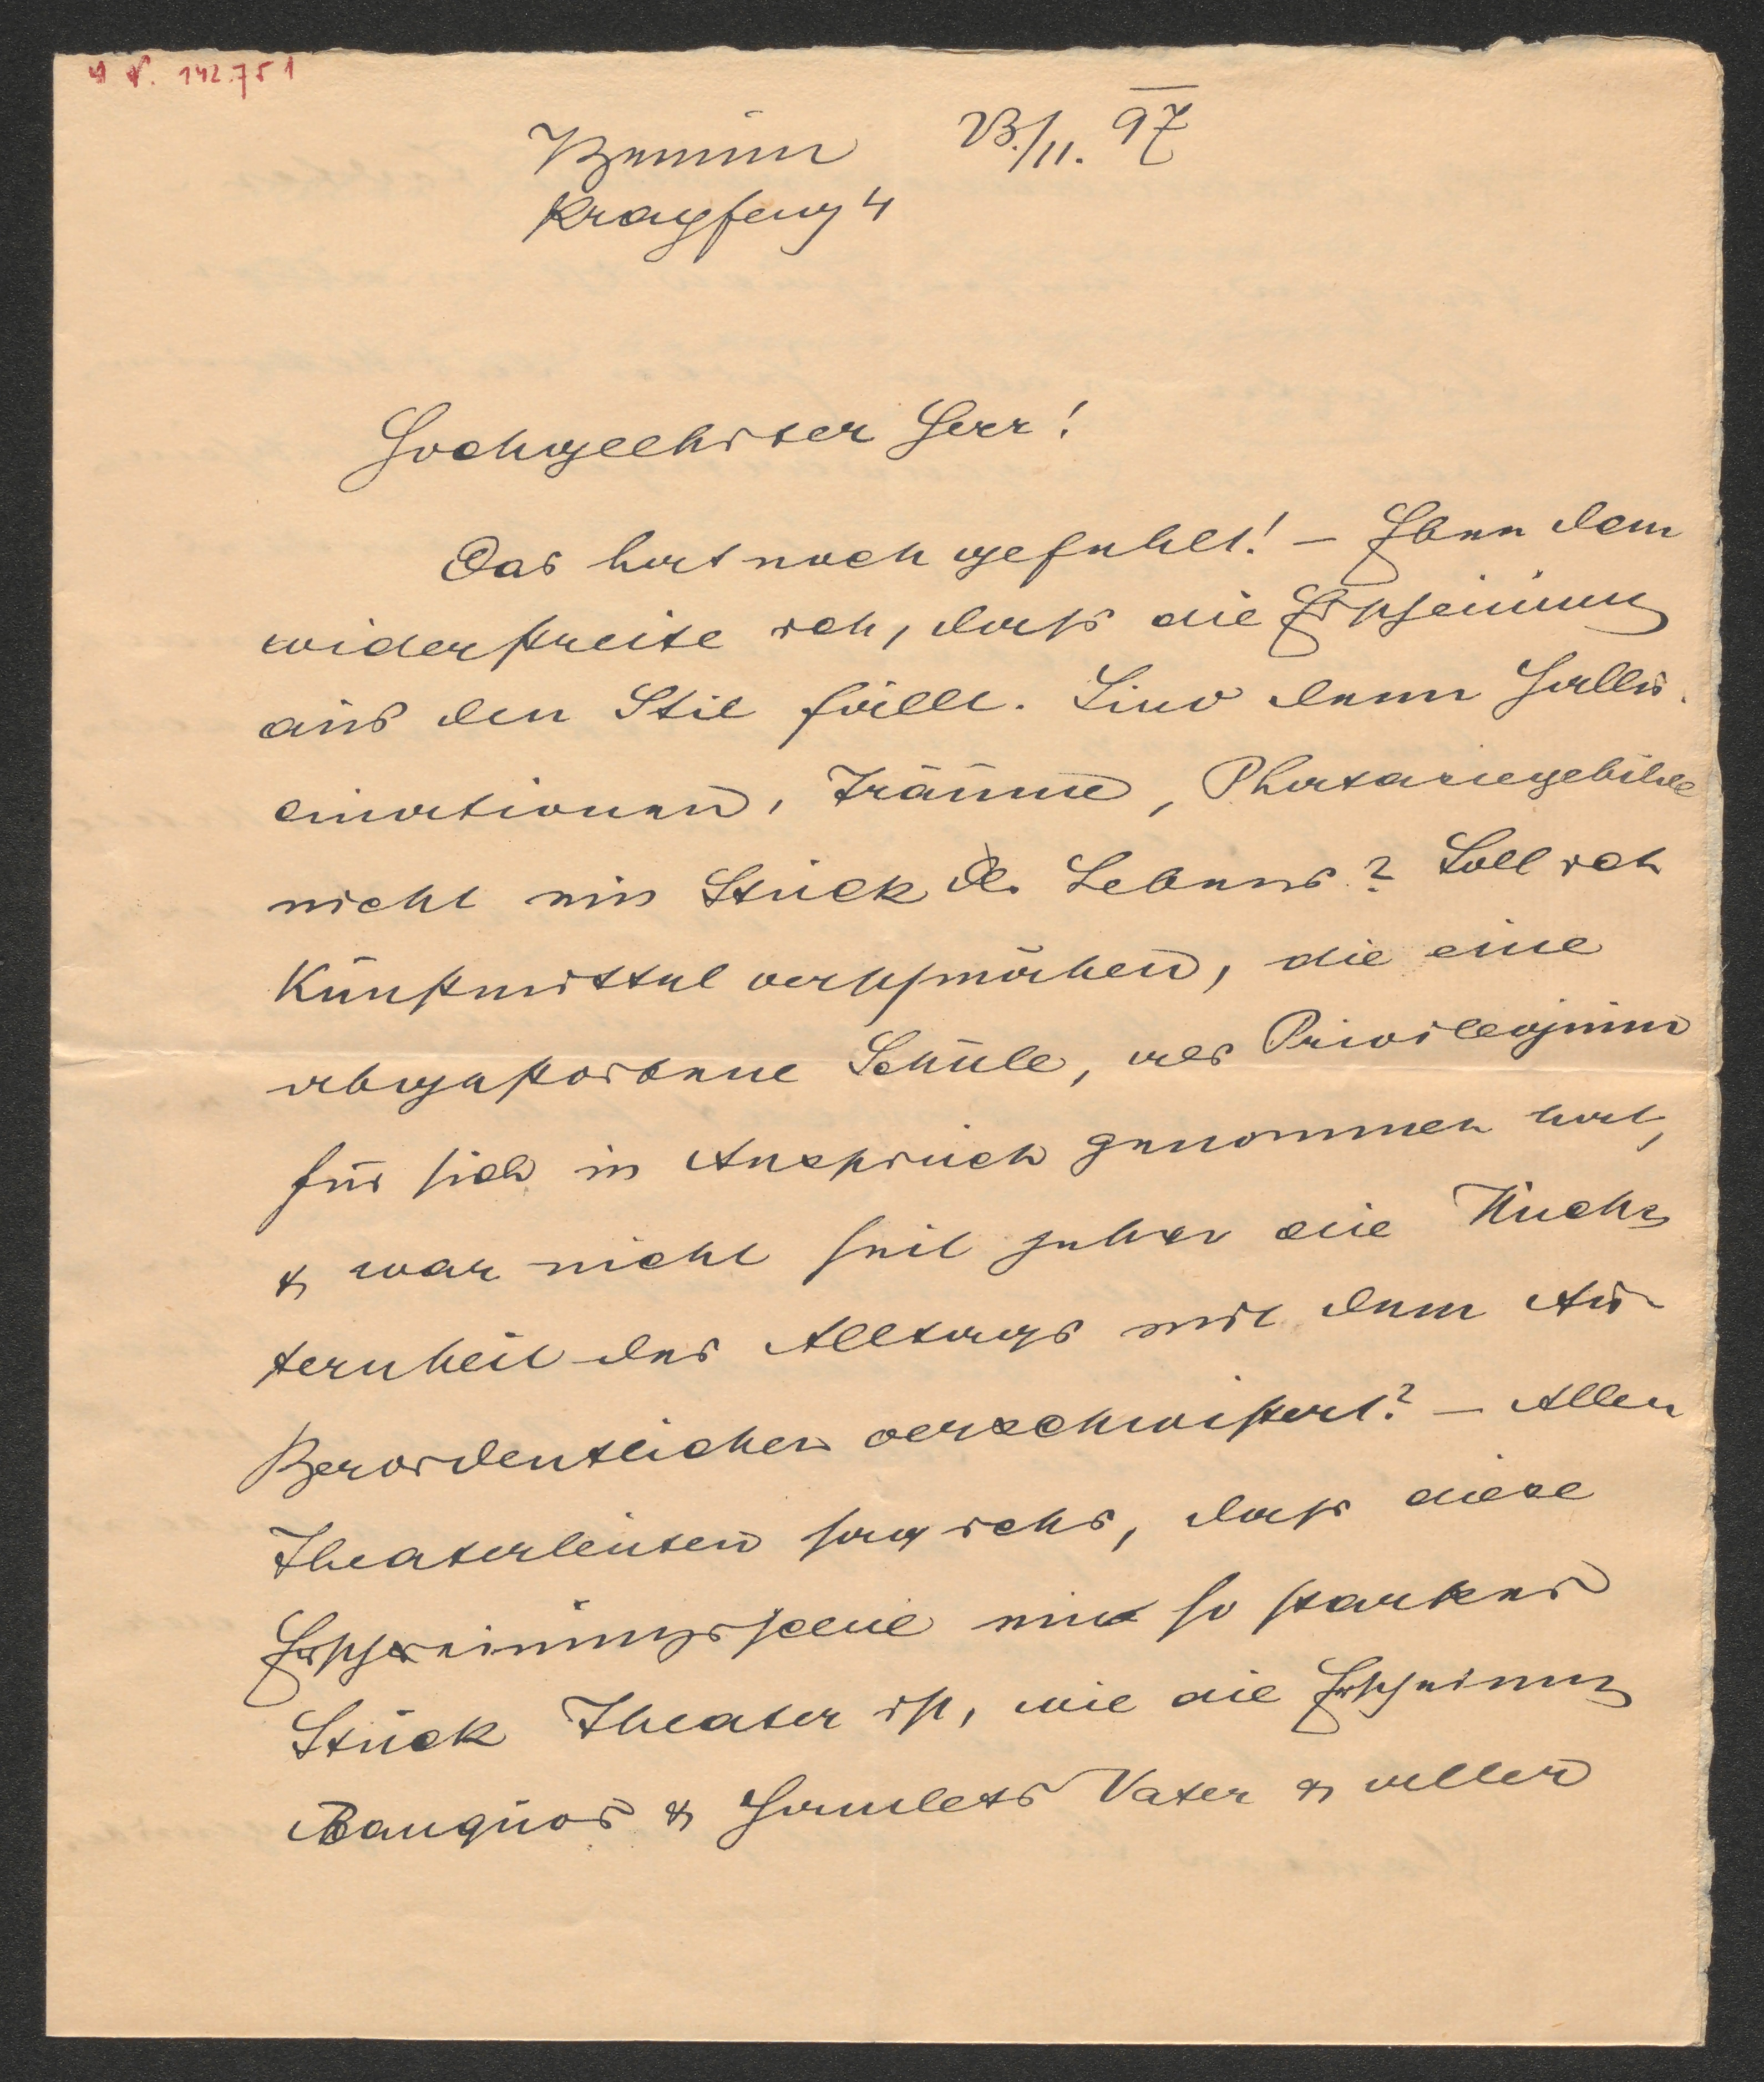 N. 142.751
Brünn 23./11. 97
4
Hochgeehrter Herr!
Das hat noch gefehlt! – Eben dem
widerstreite ich, daß die Erscheinung
aus den Stil fällt. Sind denn Hallu-
cinationen, Träume, Phatasiegebilde
nicht ein Stück d. Lebens? Soll ich
Kunstmittel verschmähen, die eine
abgestorbene Schule, als Privilegium
für sich in Anspruch genommen hat,
& war nicht seit jeher die Nüch-
ternheit des Alltags mit dem Au-
ßerordentlichen verschwistert? – Allen
Theaterleuten sag ichs, daß diese
Erscheinungsscene ein so starkes
Stück Theater ist, wie die Erscheinung
Banquos & Hamlets Vater & aller